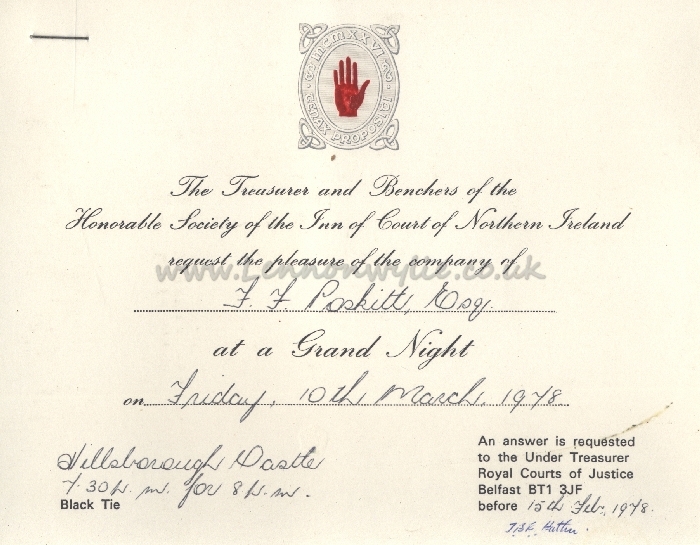 MCMXXVI
TENAX PROPOSITI
The Treasurer and Benchers of the
Honorable Society of the Inn of Court of Northern Ireland
request the pleasure of the company of
www.Lennonwylie.co.uk
F. F. Poskitt, Esq
at a Grand Night
on Friday, 10th March, 1978
Hillsborough Castle
7.30 p.m. for 8 p.m.
Black Tie
An answer is requested
to the Under Treasurer
Royal Courts of Justice
Belfast BT1 3JF
before 15th Feb, 1978.